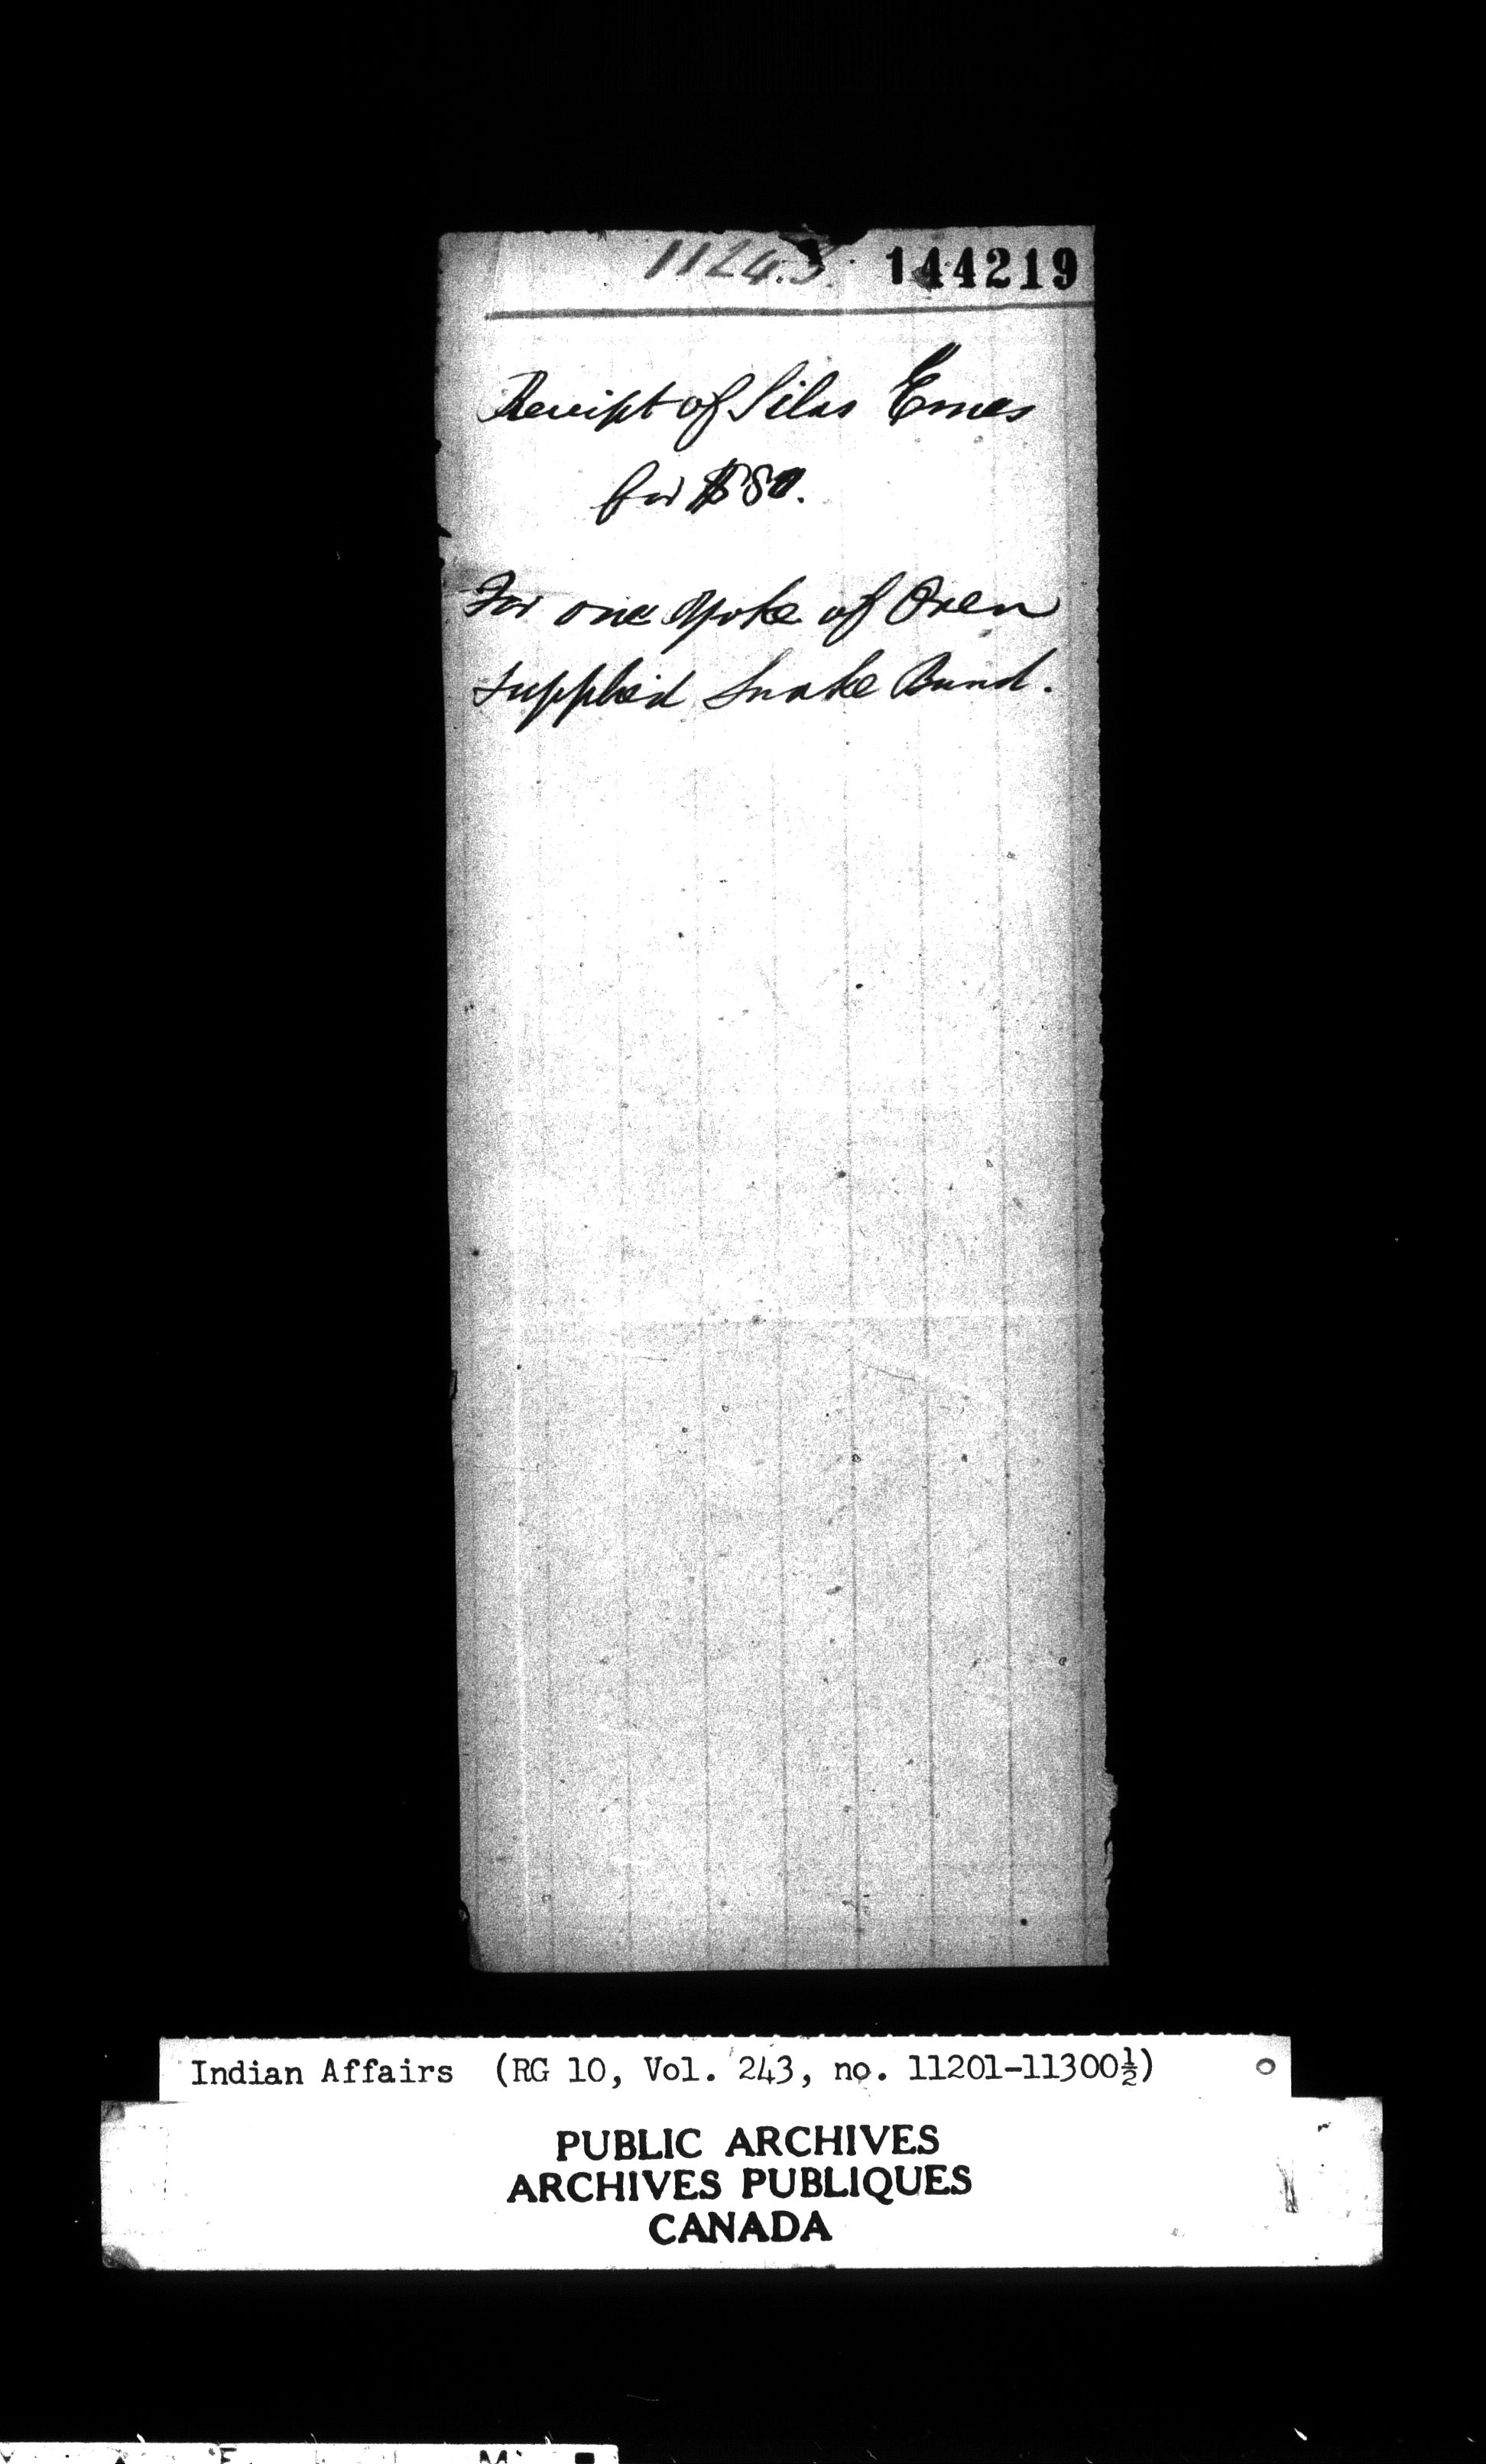 11243. 144219
Receipt of Silas Emes
for $80.
For one Yoke of Oxen
supplied Snake Band.
Indian Affairs (RG 10, Vol. 243, no. 11201-11300½)
PUBLIC ARCHIVES
ARCHIVES PUBLIQUES
CANADA